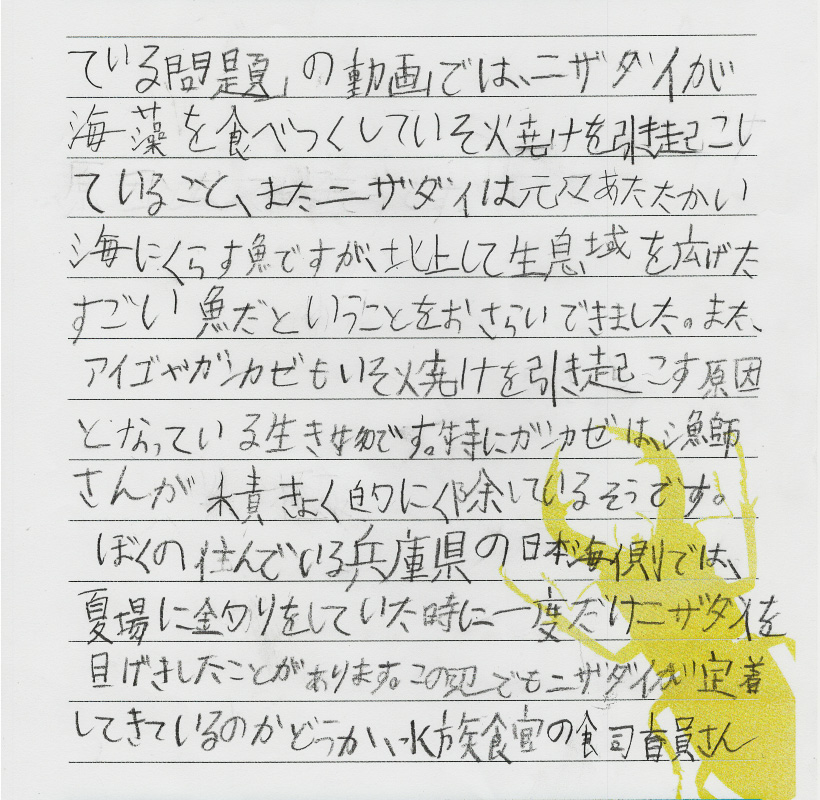 ている問題」の動画では、ニザダイが
海藻を食べつくしていそ火焼けを引き起こし
ていること、またニザダイは元々あたたかい
海にくらす魚ですが、北上して生息域を広げた
すごい魚だということをおさらいできました。また、
アイゴやガンガゼもいそ火焼けを引き起こす原因
となっている生き物です。特にガンカゼは、漁師
さんが積きょく的にく除しているそうです。
ぼくの住んでいる兵庫県の日本海側では、
夏場に釣りをしていた時に一度だけニザダイを
目げきしたことがあります。この辺でもニザダイが定着
してきているのかどうか、水族館の飼育員さん